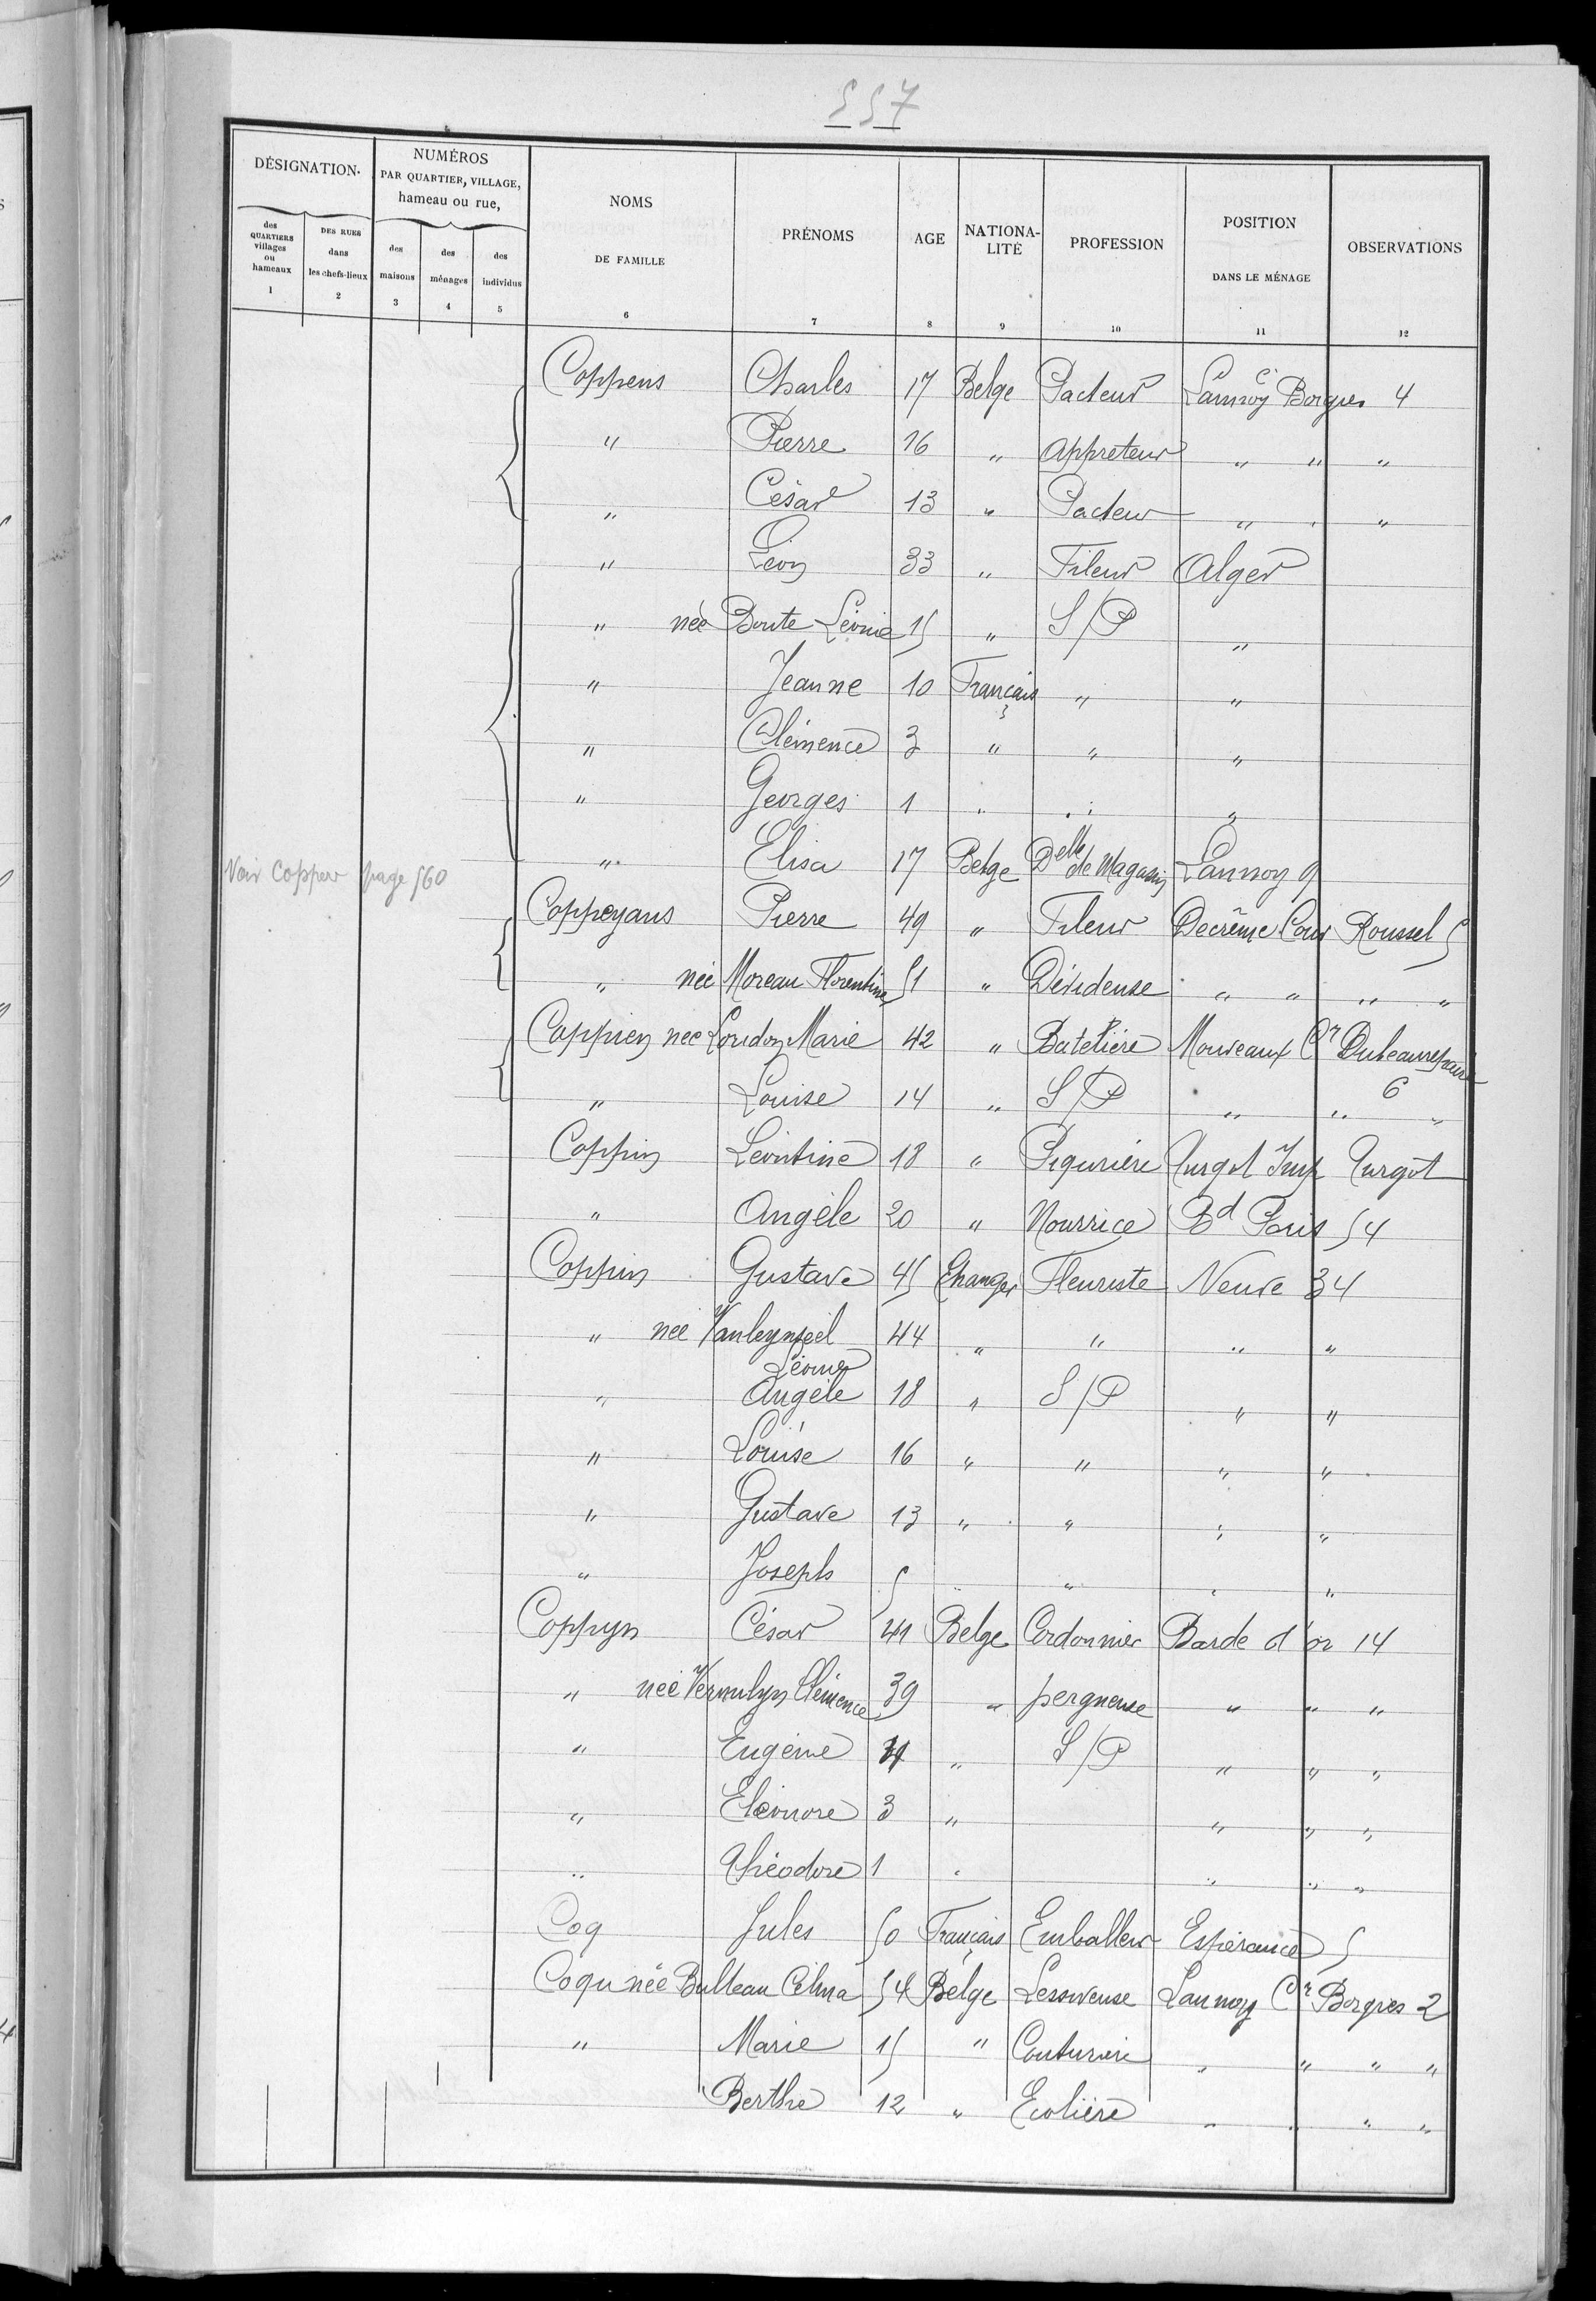 557
DÉSIGNATION. NUMÉROS PAR QUARTIER, VILLAGE, hameau ou rue, NOMS DE FAMILLE PRÉNOMS AGE NATIONA-LITÉ PROFESSION POSITION DANS LE MÉNAGE OBSERVATIONS
des QUARTIERS villages ou hameaux DES RUES dans les chefs-lieux des maisons des ménages des individus
1 2 3 4 5 6 7 8 9 10 11 12
Coppens Charles 17 Belge Pacteur Lannoy Cr Borgnes 4
" Pierre 16 " Appreteur " " "
" César 13 " Pacteur " " "
" Léon 33 " Fileur Alger
" née Boute Léonie 15 " S/P "
" Jeanne 10 Français " "
" Clémence 3 " " "
" Georges 1 " " "
" Elisa 17 Belge Delle de Magasin Lannoy 9
Voir Copper page 560
Coppeyans Pierre 49 " Fileur Decrême Cour Roussel 5
" née Moreau Florentine 51 " Dévideuse " " " "
Coppien née Loudon Marie 42 " Batelière Mouveaux Cr Dubeaurepaire
" Louise 14 " S/P " " 6 "
Coppin Léontine 18 " Piqurière Turgot Imp Turgot
" Angèle 20 " Nourrice Bd Paris 54
Coppin Gustave 45 Etranger Fleuriste Neuve 34
" née 44 " " " "
Léonie
" Angèle 18 " S/P " "
" Louise 16 " " " "
" Gustave 13 " " " "
" Joseph 5 " " " "
Coppyn César 41 Belge Cordonnier Barbe d'or 14
" née Vermulyn Clémence 39 " peigneuse " " "
" Eugénie " S/P " " "
" Eléonore 3 " " " "
" Théodore 1 " " " "
Coq Jules 50 Français Emballeur Espérance 5
Coqu née Bulteau Célina 54 Belge Lessiveuse Lannoy Cr Borgnes 2
" Marie 15 " Couturière " " " "
Berthe 12 " Ecolière " " " "